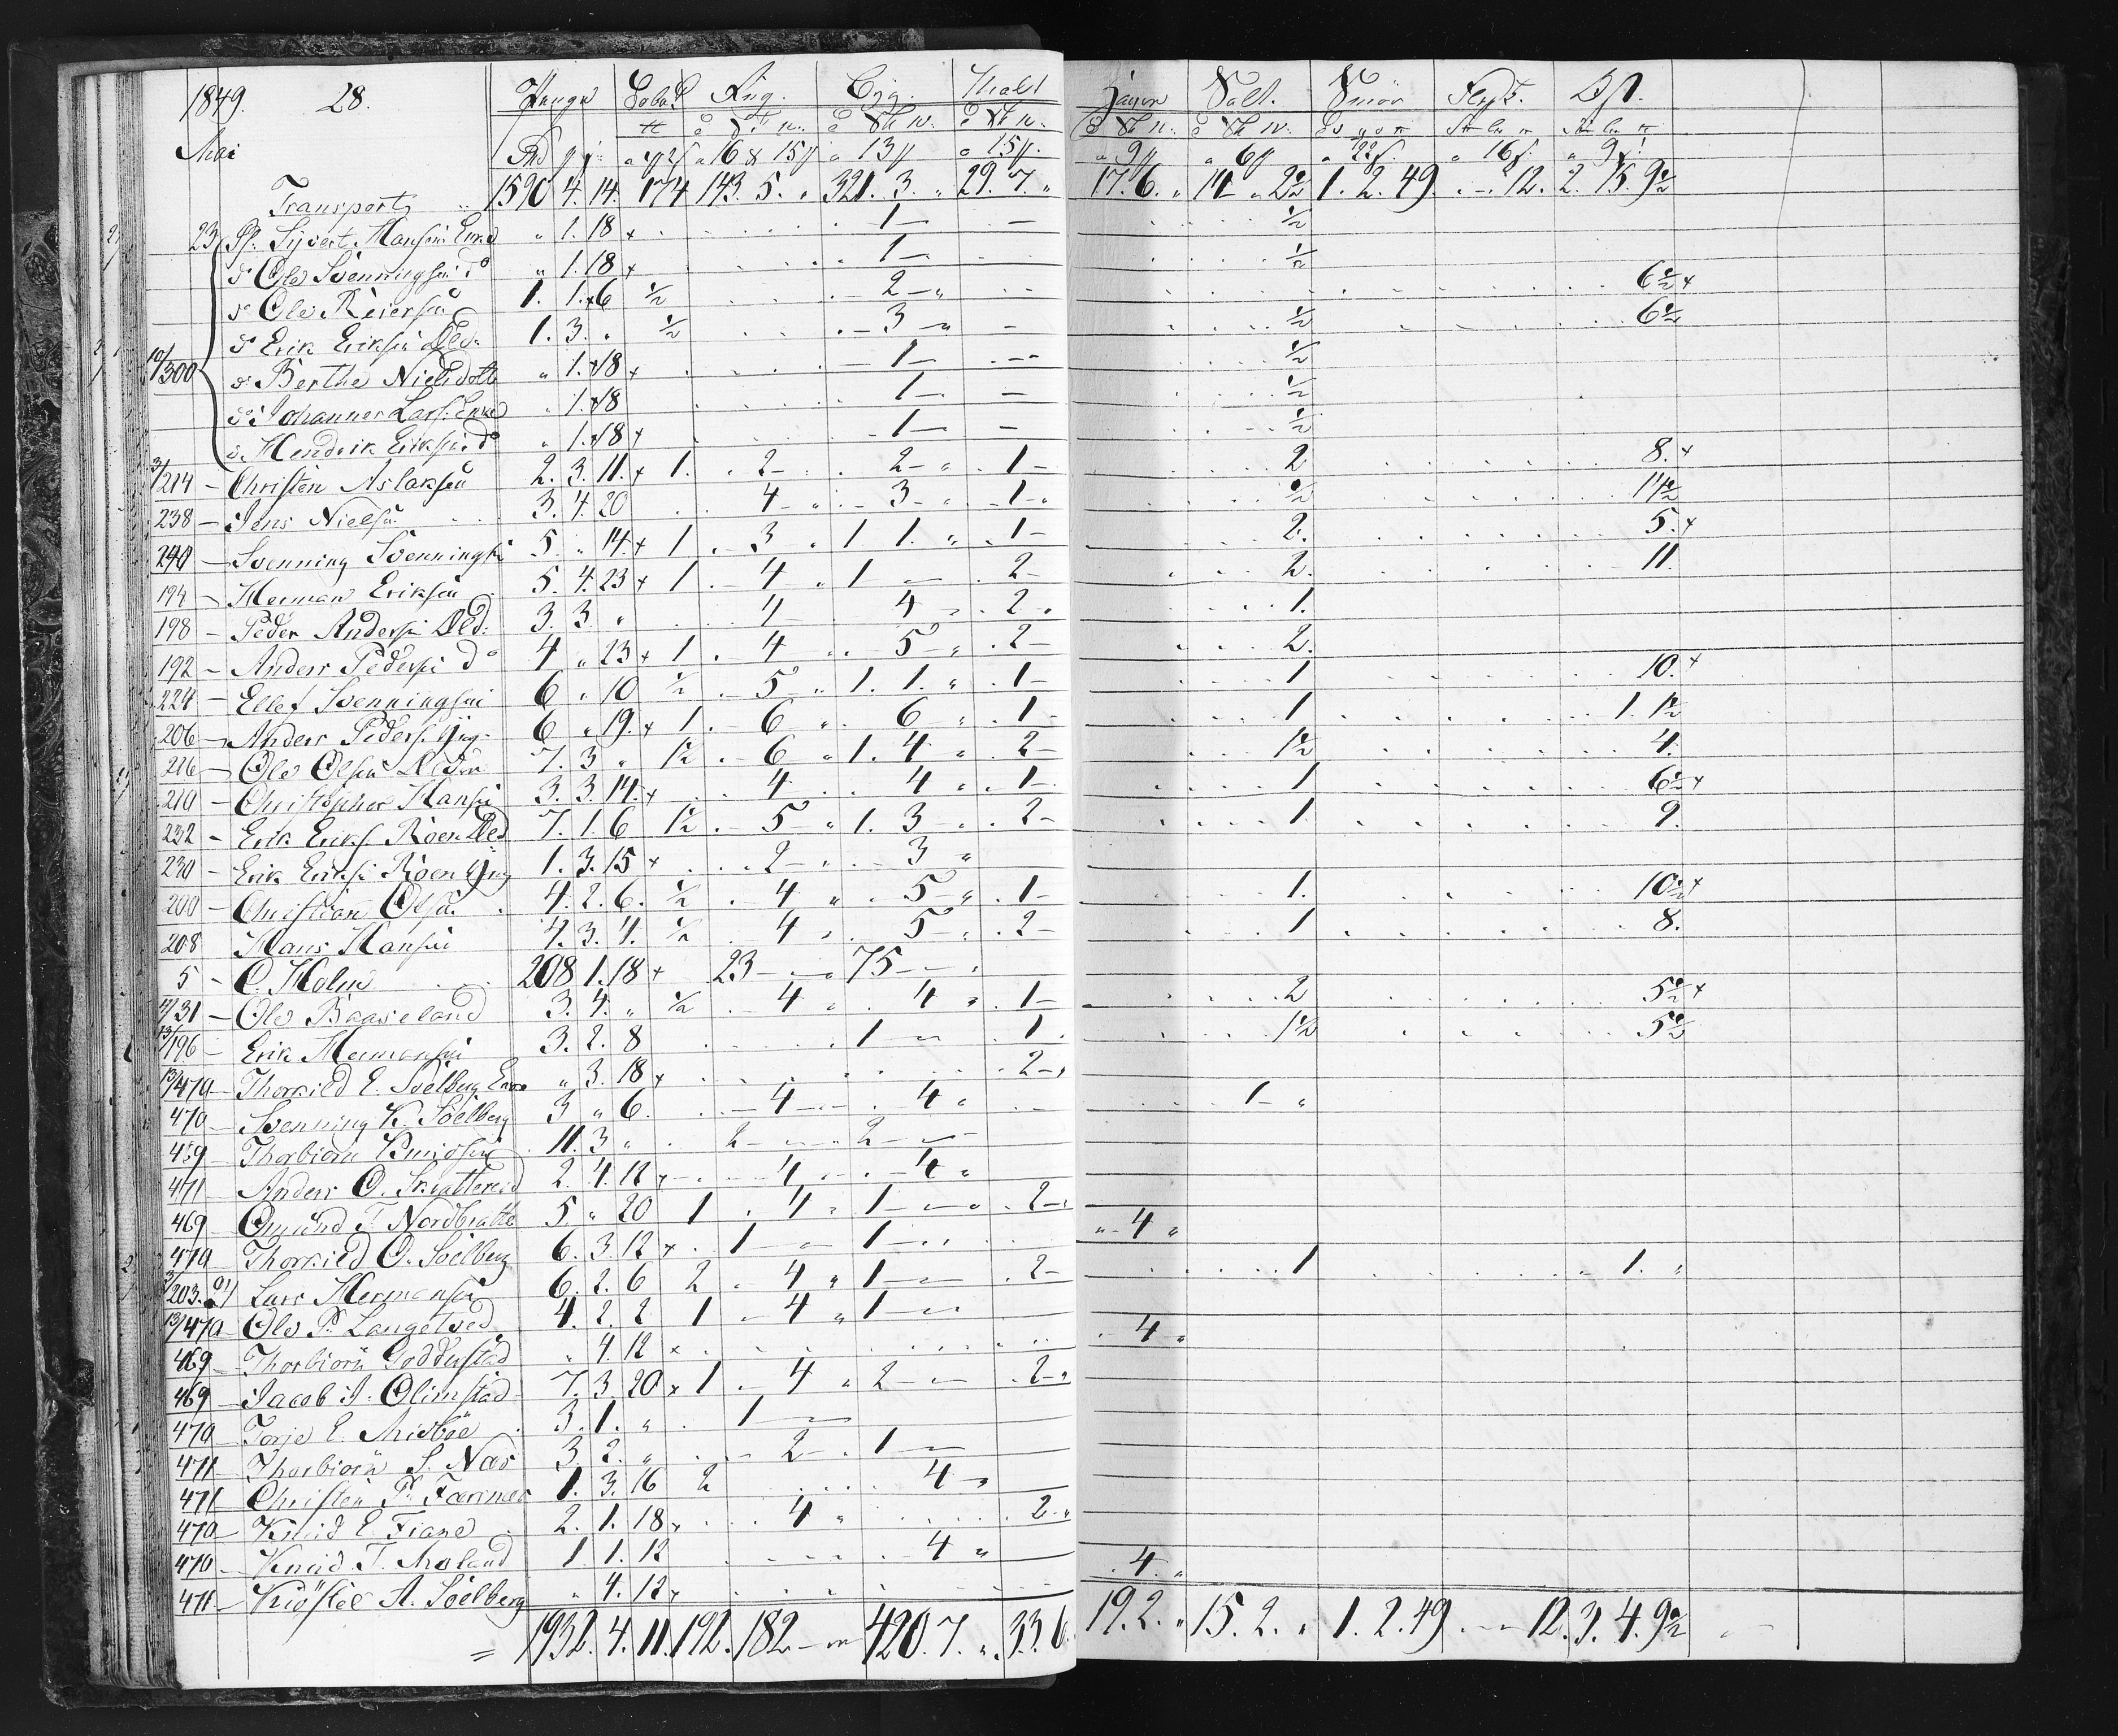 1849. 28. Penge Tobak Rug. Byg. Malt Havre Salt. Smör Flesk. Ost.
Mai
" 16 & 15 ſſ " 13 ſſ " 15 ſſ. " 9 ſſ " 6 ſſ " 16 ſ. " 9 ſ.
Transport 1590 4. 14. 174 143. 5. " 321. 3. " 29. 7. " 17. 6. " 14 " 2 1/2 1. 2. 49. 12. 2. 15. 9 1/2
23 Sivert Hansens Enke " 1. 18 × 1 — 1/2
do Ole Svenningsen do " 1. 18 × 1 — 1/2
do Ole Reiersen 1. 1. × 6 1/2 2 — " 6 1/2 ×
do Erik Eriksen Æld. 1. 3. " 1/2 3 — " 1/2 6 1/2
10/300 do Berthe Nielsdotter " 1. × 18 × 1 — 1/2
do Johannes Lars. Enke " 1. × 18 1 — 1/2
do Hendrik Eriksen do " 1. × 18 × 1 — 1/2
3/214 – Christen Aslaksen 2. 3. 11. × 1. 2 — 2 — " 1 — 2 8. ×
238 – Jens Nielsen 3. 4. 20 4 " 3 — " 1 — 1/2 11 1/2
240 – Svenning Svenningsen 5. " 14. × 1 3 " 1 1. " 1 — 2. 5. ×
194 – Herman Eriksen 5. 4. 23 × 1 4 " 1 — 2 — 2. 11.
198 – Peder Andersen Æld. 3. 3 " 4 4 2 1.
192 – Anders Pedersen do 4 " 23 × 1 4 5 — " 2 — 2.
224 – Ellef Svenningsen 6 " 10 1/2 5 — " 1. 1. " 1 — 1 10. ×
206 – Anders Peders. yng. 6 " 19. × 1. 6 " 6 " 1 — 1 1. 1 1/2
216 – Ole Olsen 7. 3 " 1 1/2 6 " 1. 4 " 2 — 1 1/2 4.
210 – Christopher Hansen 3. 3. 14. × 4 4 " 1 — 1 6 1/2 ×
232 – Erik Eriks. Roen Æld 7. 1. 6 1 1/2 5 — " 1. 3 — 2 — 1 9.
230 – Erik Eriks. Roen yng 1. 3. 15 × 2 — 3 "
200 – Christian Olsen 4. 2. 6. 1/2 4 " 5 — " 1 — 1. 10 1/2 ×
208 Hans Hansen 4. 3. 4. 1/2 4 5 — 2 — 1 8.
5 – C. Holm 208 1. 18 × 23 — 75 —
4/31 – Ole Baaseland 3. 4. " 1/2 4 4 " 1 — 2 5 1/2 ×
13/196 – Erik Hermansen 3. 2. 8 1 — 1. 1 1/2 5 1/2
13/470 – Thorkild E. Söelberg Enke " 3. 18 × 2 —
470 – Svenning K. Söelberg 3 " 6. 4 — 4 " 1 — "
459 – Thorbiørn Knudsen 11. 3 " 2 — 2 —
471 Anders O. Skrattereid 2. 4. 12 × 4 — 4 "
469 – Omund T. Nordbratte 5 " 20 1 4 " 1 — 2 — " 4 "
470 Thorkild O. Söelberg 6. 3. 12 × 1 — 1 —
3/203. Lars Hermansen 6. 2. 6 2 4 " 1 — 2 — 1 1. "
13/470 – Ole P. Langetved 4. 2. 2 1 4 " 1 — 4 "
469 – Thorbiørn Godderstad " 4. 12 ×
469 – Jacob J. Olimstad 7. 3. 20 × 1 4 " 2 — 2 —
470 Torje E. Midböe 3. 1. " 1 —
471 – Thorbiørn S. Næs 3. 2. " 2 — 1 —
471 Christen P. 1. 3. 16 2 4
470 – Knud E. Fiane 2. 1. 18 × 4 " 2. "
470 – Knud T. Moland 1. 1. 12 4 " 4. "
471. – Kiöstel A. Söelberg " 4. 12 ×
= 1932. 4. 11. 192. 182 — 420. 7. " 33. 6. 19. 2. " 15. 2. " 1. 2. 49 12. 3. 4. 9 1/2